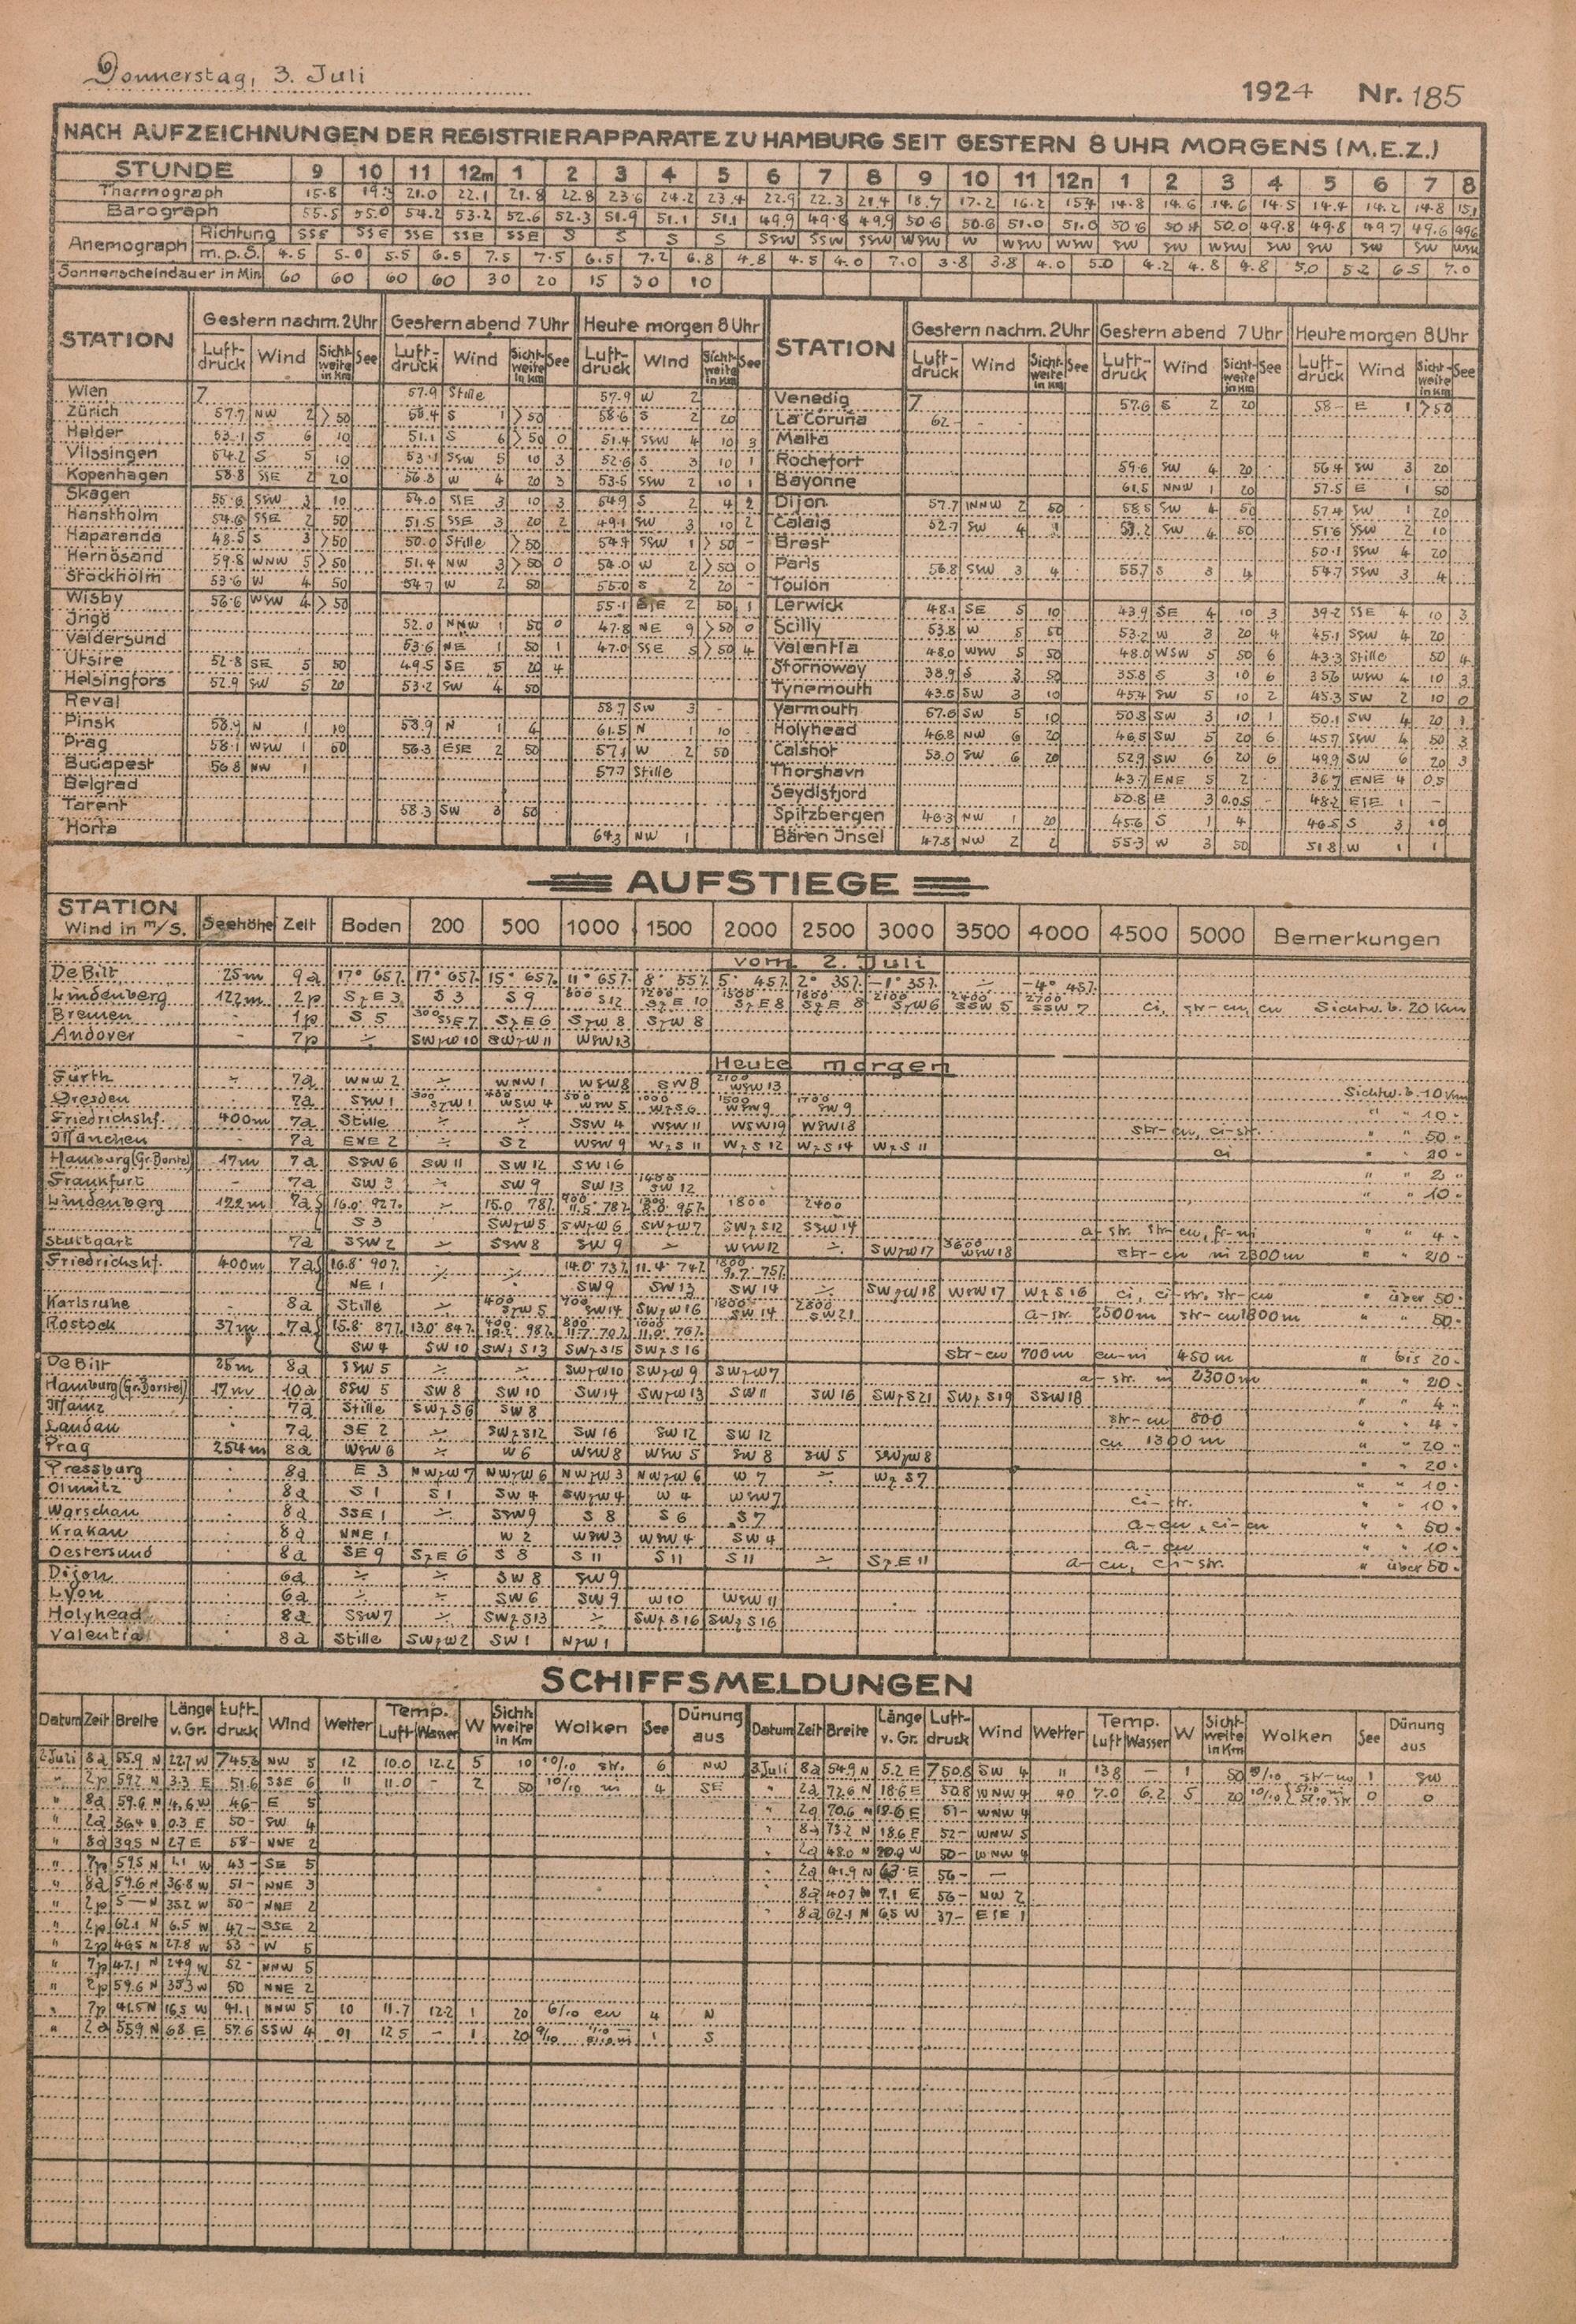 Donnerstag, 3. Juli
1924 Nr. 185
NACH AUFZEICHNUNGEN DER REGISTRIERAPPARATE ZU HAMBURG SEIT GESTERN 8 UHR MORGENS (M.E.Z.)
STUNDE 9 10 11 12m 1 2 3 4 5 6 7 8 9 10 11 12n 1 2 3 4 5 6 7 8
Thermograph 15.8 21.0 22.1 21.8 22.8 23.6 24.2 23.4 22.9 22.3 21.4 18.7 17.2 16.2 15.4 14.8 14.6 14.6 14.5 14.4 14.2 14.8
Barograph 55.5 55.0 54.2 53.2 52.6 52.3 51.9 51.1 51.1 49.9 49.8 49.9 50.6 50.6 51.0 51.0 50.6 50.4 50.0 49.8 49.8 49.7 49.6 49.6
Anemograph Richtung SSE SSE SSE SSE SSE S S S S SSW SSW SSW WSW W WSW WSW SW SW WSW SW SW SW SW WSW
m.p.S. 4.5 5.0 5.5 6.5 7.5 7.5 6.5 7.2 6.8 4.8 4.5 4.0 7.0 3.8 3.8 4.0 5.0 4.2 4.8 4.8 5.0 5.2 6.5 7.0
Sonnenscheindauer in Min. 60 60 60 60 30 20 15 30 10
STATION Gestern nachm. 2 Uhr Gestern abend 7 Uhr Heute morgen 8 Uhr STATION Gestern nachm. 2 Uhr Gestern abend 7 Uhr Heute morgen 8 Uhr
Luft-druck Wind Sicht-weite in Km See Luft-druck Wind Sicht-weite in Km See Luft-druck Wind Sicht-weite in Km See Luft-druck Wind Sicht-weite in Km See Luft-druck Wind Sicht-weite in Km See Luft-druck Wind Sicht-weite in Km See
Wien 7 57.9 Stille 57.9 W 2 Venedig 7 57.6 S 2 20 58- E 1 >50
Zürich 57.7 NW 2 >50 58.4 S 1 >50 58.6 S 2 20 La Coruña 62-
Helder 53.1 S 6 10 51.1 S 6 >50 0 51.4 SSW 4 10 3 Malta
Vlissingen 54.2 S 5 10 53.1 SSW 5 10 3 52.6 S 3 10 1 Rochefort 59.6 SW 4 20 56.4 SW 3 20
Kopenhagen 58.8 SSE 2 20 56.8 W 4 20 3 53.5 SSW 2 10 1 Bayonne 61.5 NNW 1 20 57.5 E 1 50
Skagen 55.8 SSW 3 10 54.0 SSE 3 10 3 54.9 S 2 4 2 Dijon 57.7 NNW 2 50 58.5 SW 4 50 57.4 SW 1 20
Hanstholm 54.6 SSE 2 50 51.5 SSE 3 20 2 49.1 SW 3 10 2 Calais 52.7 SW 4 SW 4 50 51.6 SSW 2 10
Haparanda 48.5 S 3 >50 50.0 Stille >50 54.9 SSW 1 >50 - Brest 50.1 SSW 4 20
Hernösand 59.8 WNW 5 >50 51.4 NW 3 >50 0 54.0 W 2 >50 0 Paris 56.8 SSW 3 4 55.7 S 3 4 54.7 SSW 3 4
Stockholm 53.6 W 4 50 54.7 W 2 50 55.0 S 2 20 - Toulon
Wisby 56.6 WSW 4 >50 55.1 ESE 2 50 1 Lerwick 48.1 SE 5 10 43.9 SE 4 10 3 39.2 SSE 4 10 3
Jngö 52.0 NNW 1 50 0 47.8 NE 9 >50 0 Scilly 53.8 W 5 50 53.2 W 3 20 4 45.1 SSW 4 20
Valdersund 53.6 NE 1 50 1 47.0 SSE 5 >50 4 Valentia 48.0 WSW 5 50 48.0 WSW 5 50 6 43.3 Stille 50 4
Utsire 52.8 SE 5 50 49.5 SE 5 20 4 Stornoway 38.9 S 3 50 35.8 S 3 10 6 35.6 WSW 4 10 3
Helsingfors 52.9 SW 5 20 53.2 SW 4 50 Tynemouth 43.5 SW 3 10 45.4 SW 5 10 2 45.3 SW 2 10 0
Reval 58.7 SW 3 - Yarmouth 57.6 SW 5 10 50.8 SW 3 10 1 50.1 SW 4 20 1
Pinsk 58.9 N 1 10 58.9 N 1 4 61.5 N 1 10 Holyhead 46.8 NW 6 20 46.8 SW 5 20 6 45.7 SSW 4 50 3
Prag 58.1 WSW 1 50 56.3 ESE 2 50 57.1 W 2 50 Calshot 53.0 SW 6 20 52.9 SW 6 20 6 49.9 SW 6 20 3
Budapest 56.8 NW 1 57.7 Stille Thorshavn 43.7 ENE 5 2 36.7 ENE 4 0.5
Belgrad Seydisfjord 50.8 E 3 0.05 - 48.2 ESE 1 -
Tarent 58.3 SW 3 50 Spitzbergen 46.3 NW 1 20 45.6 S 1 4 46.5 S 3
Horta 64.3 NW 1 Bären Jnsel 47.8 NW 2 2 55.3 W 3 50 51.8 W 1 1
AUFSTIEGE
STATION Wind in m/S. Seehöhe Zeit Boden 200 500 1000 1500 2000 2500 3000 3500 4000 4500 5000 Bemerkungen
vom 2. Juli
De Bilt 25m 9a 17° 65% 17° 65% 15° 65% 11° 65% 8° 55% 5° 45% 2° 35% -1° 35% ÷ -4° 45%
Lindenberg 122m 2p SzE 3 S 3 S 9 800 S 12 1200 SzE 10 1500 SzE 8 1800 SzE 8 2100 SzW 6 2400 SSW 5 2700 SSW 7 ci, str-cu, cu Sichtw. b. 20 Km
Bremen - 1p S 5 300 SSE 7 SzE 6 SzW 8 SzW 8
Andover - 7p ÷ SWzW 10 SWzW 11 WSW 13
Heute morgen
Fürth ÷ 7a WNW 2 ÷ WNW 1 WSW 8 SW 8 2100 WSW 13
Dresden 7a SSW 1 300 SzW 1 400 WSW 4 500 WSW 5 1000 WzS 6 1500 WSW 9 1700 SW 9 Sichtw. b. 10 Km
Friedrichshf. 400m 7a Stille ÷ ÷ SSW 4 WSW 11 WSW 19 WSW 18 " " 10
München - 7a ENE 2 ÷ S 2 WSW 9 WzS 11 WzS 12 WzS 14 WzS 11 str-cu, ci-str. " " 50
Hamburg (Gr. Borstel) 17m 7a SSW 6 SW 11 SW 12 SW 16 ci " " 20
Frankfurt - 7a SW 3 ÷ SW 9 SW 13 1400 SW 12 " " 2
Lindenberg 122m 7a 16.0° 92% ÷ 15.0 78% 900 11.5° 78% 1300 8.0° 95% 1800 2400 " " 10
S 3 SWzW 5 SWzW 6 SWzW 7 SWzS 12 SSW 14
Stuttgart 7a SSW 2 ÷ SSW 8 SW 9 ÷ WSW 12 ÷ SWzW 17 3600 WSW 18 a-str. str-cu, fr-ni " " 4
Friedrichshf. 400m 7a 16.8° 90% ÷ ÷ 14.0° 73% 11.4° 74% 1800 9.7° 75% str-cu ni 2300m " " 20
NE 1 SW 9 SW 13 SW 14 ÷ SWzW 18 WSW 17 WzS 16 ci, ci-str, str-cu " über 50
Karlsruhe - 8a Stille ÷ 400 SzW 5 900 SW 14 SWzW 16 1800 SW 14 2800 SW 21 a-str. 2500m str-cu 1800m " " 50
Rostock 37m 7a 15.8° 87% 13.0° 84% 400 98% 800 11.7° 70% 1000 11.0° 76%
SW 4 SW 10 SWzS 13 SWzS 15 SWzS 16 str-cu 700m cu-ni 450m " bis 20
De Bilt 25m 8a SSW 5 ÷ SWzW 10 SWzW 9 SWzW 7 a-str. ni 2300m " 20
Hamburg (Gr. Borstel) 17m 10a SSW 5 SW 8 SW 10 SW 14 SWzW 13 SW 11 SW 16 SWzS 21 SWzS 19 SSW 18 " " 4
Mainz 7a Stille SWzS 6 SW 8 str-cu 800 " " 4
Landau 7a SE 2 ÷ SWzS 12 SW 16 SW 12 SW 12 cu 1300m " " 20
Prag 254m 8a WSW 6 ÷ W 6 WSW 8 WSW 5 SW 8 SW 5 SWzW 8 " " 20
Pressburg 8a E 3 NWzW 7 NWzW 6 NWzW 3 NWzW 6 W 7 ÷ WzS 7 " " 10
Olmütz 8a S 1 S 1 SW 4 SWzW 4 W 4 WSW 7 ci-str. " " 10
Warschau 8a SSE 1 ÷ SSW 9 S 8 S 6 S 7 a-cu, ci-cu " " 50
Krakau 8a NNE 1 W 2 WSW 3 WSW 4 SW 4 a-cu " " 10
Oestersund 8a SE 9 SzE 6 S 8 S 11 S 11 S 11 ÷ SzE 11 a-cu, ci-str. " über 50
Dijon 6a ÷ ÷ SW 8 SW 9
Lyon 6a ÷ ÷ SW 6 SW 9 W 10 WSW 11
Holyhead 8a SSW 7 ÷ SWzS 13 ÷ SWzS 16 SWzS 16
Valentia 8a Stille SWzW 2 SW 1 NzW 1
SCHIFFSMELDUNGEN
Datum Zeit Breite Länge v. Gr. Luft-druck Wind Wetter Temp. Luft Wasser W Sicht-weite in Km Wolken See Dünung aus Datum Zeit Breite Länge v. Gr. Luft-druck Wind Wetter Temp. Luft Wasser W Sicht-weite in Km Wolken See Dünung aus
2. Juli 8a 55.9 N 22.7 W 745.8 NW 5 12 10.0 12.2 5 10 10/10 str. 6 NW 3. Juli 8a 54.9 N 5.2 E 750.8 SW 4 11 13.8 - 1 50 str-cu 1 SW
" 2p 59.2 N 3.3 E 51.6 SSE 6 11 11.0 - 2 50 10/10 ni 4 SE " 2a 72.6 N 18.6 E 50.8 WNW 4 40 7.0 6.2 5 20 10/10 0 0
" 8a 59.6 N 4.6 W 46- E 5 " 2a 70.6 N 18.6 E 51- WNW 4
" 2a 36.4 N 0.3 E 50- SW 4 " 8a 73.2 N 18.6 E 52- WNW 5
" 8a 39.5 N 2.7 E 58- NNE 2 2a 48.0 N 20.0 W 50- WNW 4
" 7p 59.5 N 1.1 W 43- SE 5 2a 41.9 N 6.3 E 56- -
" 8a 59.6 N 36.8 W 51- NNE 3 8a 40.7 N 7.1 E 56- NW 2
" 2p 5- N 35.2 W 50- NNE 2 8a 62.1 N 6.5 W 37- ESE 1
" 2p 62.1 N 6.5 W 47- SSE 2
" 2p 46.5 N 27.8 W 53- W 5
" 7p 47.1 N 24.9 W 52- NNW 5
" 2p 59.6 N 35.3 W 50 NNE 2
" 7p 41.5 N 16.5 W 41.1 NNW 5 10 11.7 12.2 1 20 6/10 cu 4 N
" 2a 55.9 N 6.8 E 57.6 SSW 4 01 12.5 - 1 20 9/10 1 S